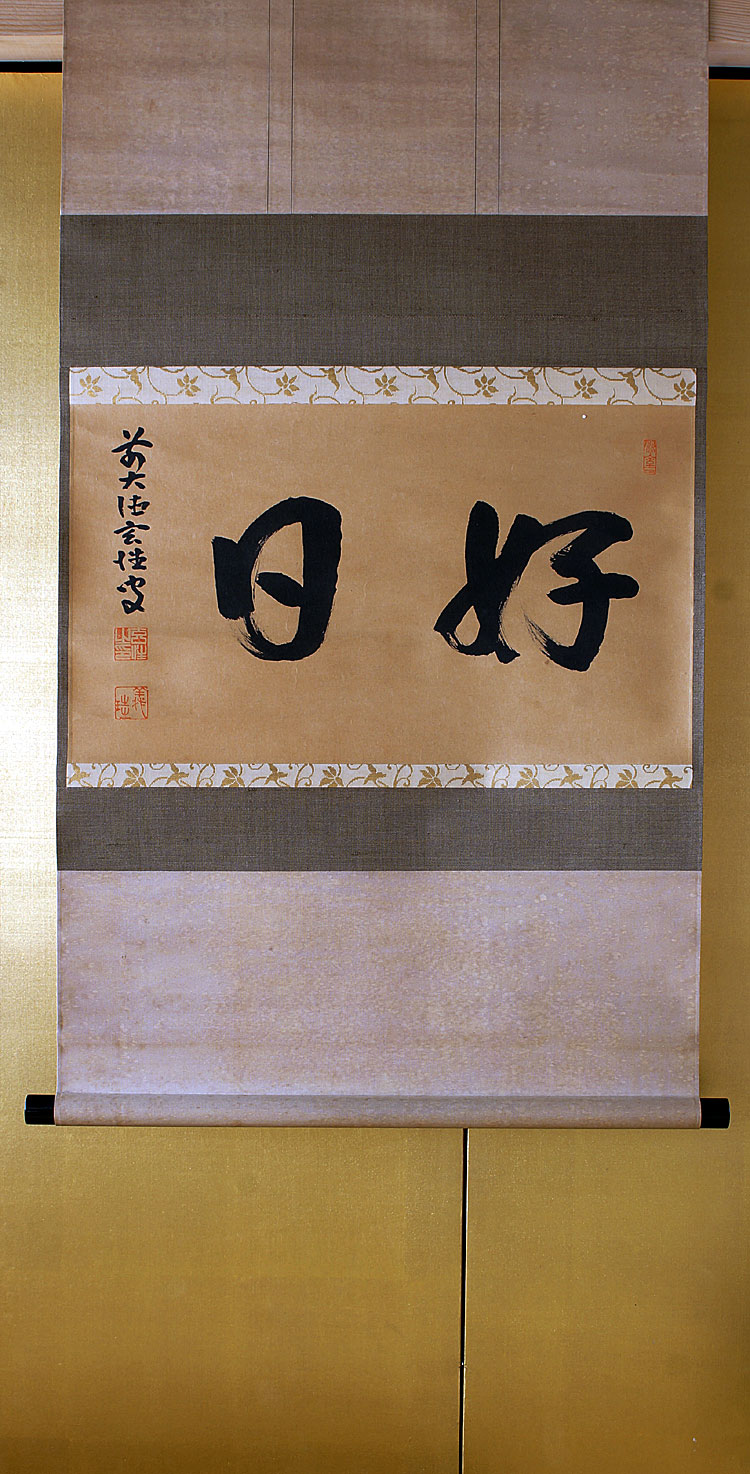 好日
前大徳玄性叟